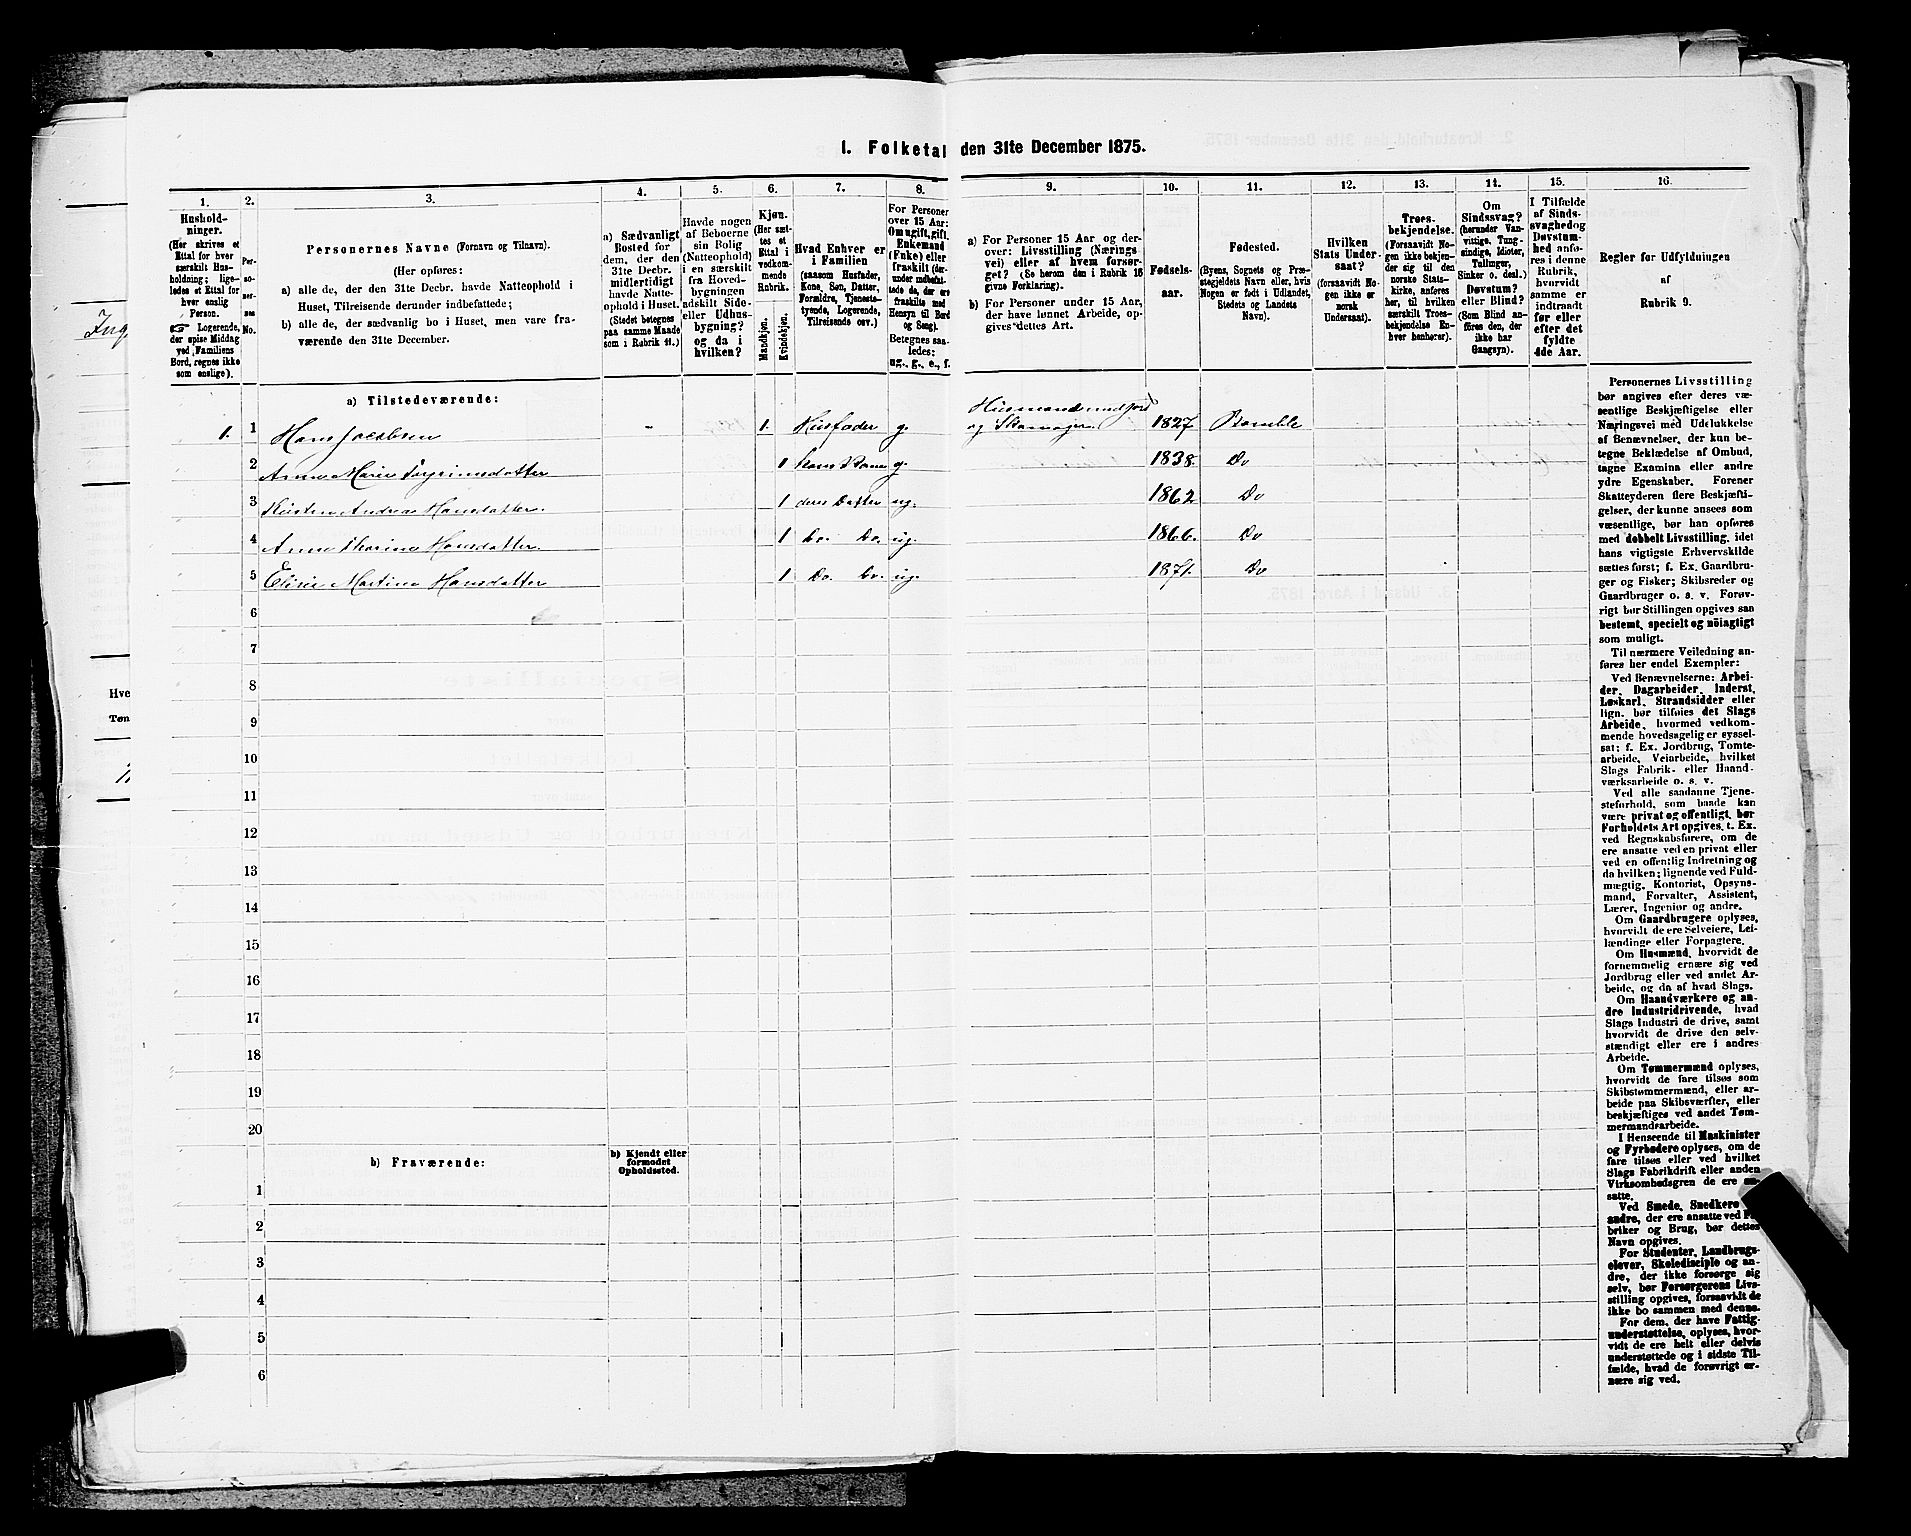 1. Folketal den 31te December 1875.
1.
2.
3.
4.
5.
6.
7.
8.
9.
10.
11.
12.
13.
14.
15.
16.
Hushold-
ninger.
(Her skrives et
Ettal for hver
særskilt Hus-
holdning; lige-
ledes et Ettal for
hver enslig
Person.
☞ Logerende,
der spise Middag
ved Familiens
Bord, regnes ikke
som enslige).
Per-
so-
ner-
nes
No.
Personernes Navne (Fornavn og Tilnavn).
(Her opføres:
a) alle de, der den 31te Decbr. havde Natteophold i
Huset, Tilreisende derunder indbefattede;
b) alle de, der sædvanlig bo i Huset, men vare fra-
værende den 31te December.
a) Sædvanligt
Bosted for
dem, der den
31te Decbr.
midlertidigt
havde Natte-
ophold i Huset.
(Stedet betegnes
paa samme Maade
som i Rubrik 11.)
Havde nogen
af Beboerne
sin Bolig
(Natteophold)
i en særskilt
fra Hoved-
bygningen
adskilt Side-
eller Udhus-
bygning?
og da i
hvilken?
Kjøn.
(Her sæt-
tes et
Ettal i
vedkom-
mende
Rubrik.
Mandkjøn.
Kvindekjøn.
Hvad Enhver er
i Familien
(saasom Husfader,
Kone, Søn, Datter,
Forældre, Tjeneste-
tyende, Logerende,
Tilreisende osv.)
For Personer
over 15 Aar:
Om ugift, gift,
Enkemand
(Enke) eller
fraskilt (der-
under indbefat-
tede de, der ere
fraskilte med
Hensyn til Bord
og Seng).
Betegnes saa-
ledes:
ug., g., e., f.
a) For Personer 15 Aar og der-
over: Livsstilling (Nærings-
vei) eller af hvem forsør-
get? (Se herom den i Rubrik 16
givne Forklaring).
b) For Personer under 15 Aar,
der have lønnet Arbeide, op-
gives dettes Art.
Fødsels-
aar.
Fødested.
(Byens, Sognets og Præ-
stegjeldets Navn eller, hvis
Nogen er født i Udlandet,
Stedets og Landets
Navn).
Hvilken
Stats Under-
saat?
(forsaavidt No-
gen ikke er
norsk
Undersaat).
Troes-
bekjendelse.
(Forsaavidt No-
gen ikke bekjen-
der sig til den
norske Stats-
kirke, anføres
her, til hvilken
særskilt Troes-
bekjendelse En-
hver henhører).
Om
Sindssvag?
(herunder Van-
vittige, Tung-
sindige, Idioter,
Tullinger,
Sinker o. desl.)
Døvstum?
eller Blind?
(Som Blind an-
føres den, der
ikke har
Gangsyn).
I Tilfælde
af Sinds-
svaghed og
Døvstum-
hed anfø-
res i denne
Rubrik,
hvorvidt
samme er
indtraadt
før eller
efter det
fyldte
4de Aar.
Regler for Udfyldningen
af
Rubrik 9.
a) Tilstedeværende:
1. 1 Hans Jacobsen 1. Husfader g. Husmand med Jord og Skomager. 1827 Bamble
2 Anne Marie Torgrimsdatter 1 hans Kone g. 1838. Do
3 Kirsten Andrea Hansdatter. 1 deres Datter ug. 1862 Do
4 Anne Thorine Hansdatter. 1 Do. Do. ug. 1866. Do
5 Elise Martine Hansdatter 1 Do. Do. ug. 1871. Do
6
7
8
9
10
11
12
13
14
15
16
17
18
19
20
b) Fraværende:
b) Kjendt eller
formodet
Opholdssted.
1
2
3
4
5
6
Personernes Livsstilling
bør angives efter deres væ-
sentlige Beskjæftigelse eller
Næringsvei med Udelukkelse
af Benævnelser, der kun be-
tegne Beklædelse af Ombud,
tagne Examina eller andre
ydre Egenskaber. Forener
Skatteyderen flere Beskjæfti-
gelser, der kunne ansees som
væsentlige, bør han opføres
med dobbelt Livsstilling, idet
hans vigtigste Erhvervskilde
sættes først; f. Ex. Gaardbru-
ger og Fisker; Skibsreder og
Gaardbruger o. s. v. Forøv-
rigt bør Stillingen opgives saa
bestemt, specielt og nöiagtigt
som muligt.
Til nærmere Veiledning an-
føres her endel Exempler:
Ved Benævnelserne: Arbei-
der, Dagarbeider, Inderst,
Løskarl, Strandsidder eller
lign. bør tilføies det Slags
Arbeide, hvormed vedkom-
mende hovedsagelig er syssel-
sat; f. Ex. Jordbrug, Tomte-
arbeide, Veiarbeide, hvilket
Slags Fabrik- eller Haand-
værksarbeide o. s. v.
Ved alle saadanne Tjene-
steforhold, som baade kan
være privat og offentligt, bør
Forholdets Art opgives, t. Ex.
ved Regnskabsførere, om de
ere ansatte ved en privat eller
ved en offentlig Indretning og
da hvilken; lignende ved Fuld-
mægtig, Kontorist, Opsyns-
mand, Forvalter, Assistent,
Lærer, Ingeniør og andre.
Om Gaardbrugere oplyses,
hvorvidt de ere Selveiere, Lei-
lændinge eller Forpagtere.
Om Husmænd, hvorvidt de
fornemmelig ernære sig ved
Jordbrug eller ved andet Ar-
beide, og da af hvad Slags.
Om Haandværkere og an-
dre Industridrivende, hvad
Slags Industri de drive, samt
hvorvidt de drive den selv-
stændigt eller ere i andres
Arbeide.
Om Tømmermænd oplyses,
hvorvidt de fare tilsøs som
Skibstømmermænd, eller ar-
beide paa Skibsværfter, eller
beskjæftiges ved andet Tøm-
mermandsarbeide.
I Henseende til Maskinister
og Fyrbødere oplyses, om de
fare tilsøs eller ved hvilket
Slags Fabrikdrift eller anden
Virksomhedsgren de ere an-
satte.
Ved Smede, Snedkere
andre, der ere ansatte ved Fa-
briker og Brug, bør dettes
Navn opgives.
For Studenter, Landbrugs-
elever, Skoledisciple og an-
dre, der ikke forsørge sig
selv, bør Forsørgerens Livs-
stilling opgives, forsaavidt de
ikke bo sammen med denne.
For dem, der have Fattig-
understøttelse, oplyses, hvor-
vidt de ere helt eller delvis
understøttede og i sidste Til-
fælde, hvad de forøvrigt er-
nære sig ved.